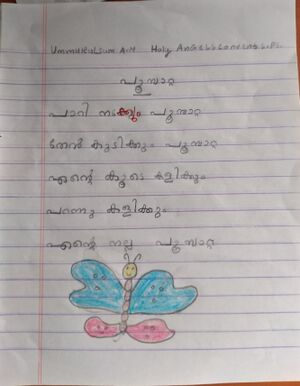 Ummukulsum A.M Holy Angels Convent L.P.S
പൂമ്പാറ്റ
പാറി നടക്കും പൂമ്പാറ്റ
തേൻ കുടിക്കും പൂമ്പാറ്റ
എന്റെ കൂടെ കളിക്കും
പറന്നു കളിക്കും
എന്റെ നല്ല പൂമ്പാറ്റ